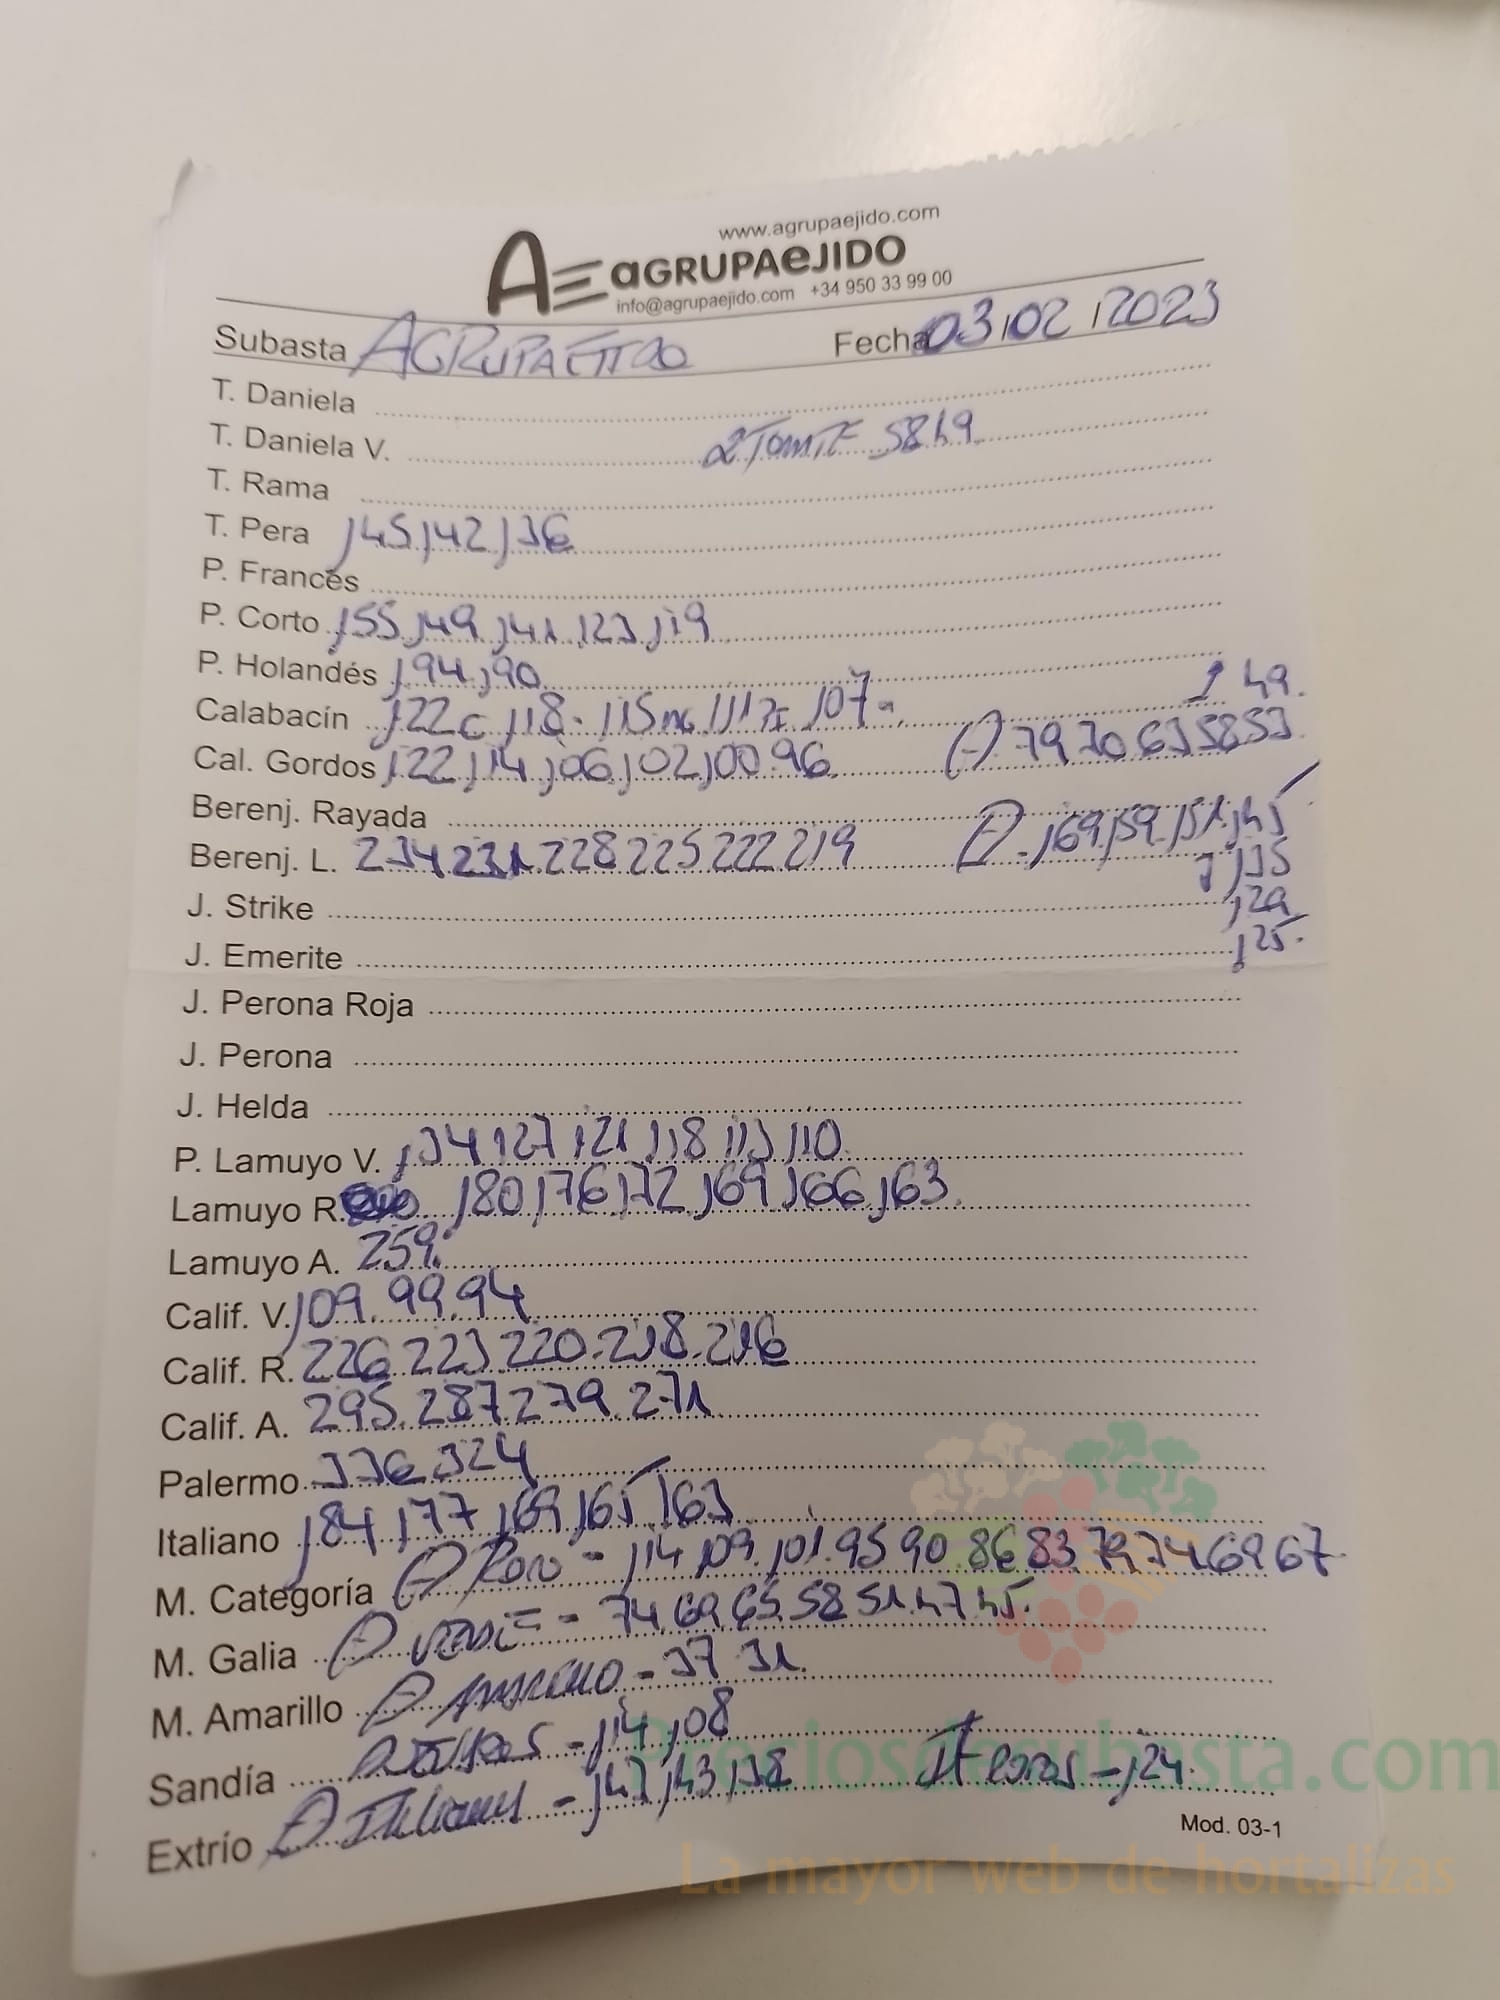 www.agrupaejido.com
AE aGRUPAeJIDO
info@agrupaejido.com +34 950 33 99 00
Subasta AGRUPAEJIDO Fecha 03/02/2023
T. Daniela
T. Daniela V. 58 49
T. Rama
T. Pera 145 142 136
P. Francés
P. Corto 155 149 141 123 119
P. Holandés 194 190
Calabacín 122 118 - 115 111 107 49.
Cal. Gordos 122 114 106 102 100 96 79 70 63 58 53
Berenj. Rayada 169 159 151 145
Berenj. L. 234 231 228 225 222 219 135
J. Strike 129
J. Emerite 125.
J. Perona Roja
J. Perona
J. Helda
P. Lamuyo V. 134 127 121 118 113 110
Lamuyo R. 180 176 172 169 166 163
Lamuyo A. 259.
Calif. V. 109. 99. 94
Calif. R. 226 223 220. 218. 216
Calif. A. 295. 287 279. 271
Palermo 336 324
Italiano 184 177 169 165 163
M. Categoría Rojo - 114 109 101. 95 90 86 83 79 74 69 67
M. Galia verde - 74 69 65 58 51. 47 45.
M. Amarillo Amarillo - 37 31.
Sandía - 114 108
Extrío Italianos - 147 143 138 - 124.
Mod. 03-1
Preciosdesubasta.com
La mayor web de hortalizas